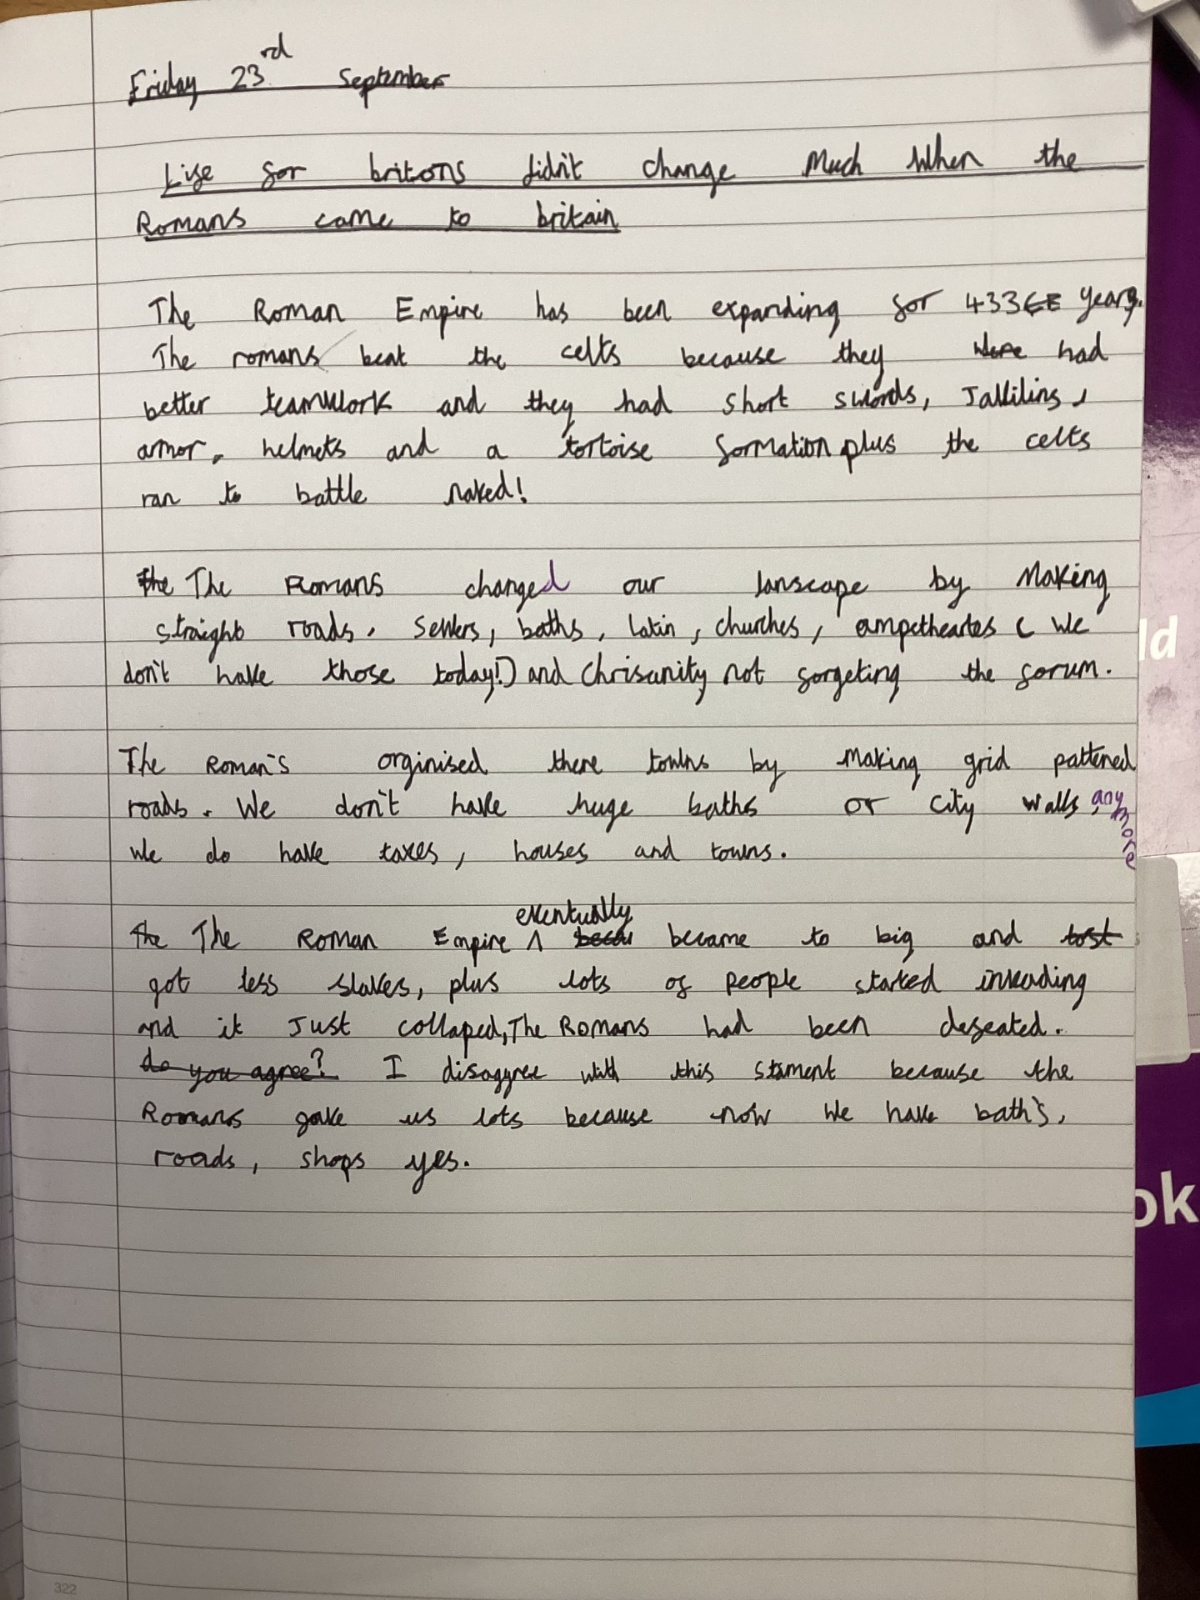 Friday 23rd September
Life for britons didn't change Much When the
Romans came to britain
The Roman Empire has been expanding for 433 CE years.
The romans beat the celts because they Were had
better teamwork and they had short swords, Jallilins,
armor, helmets and a tortoise formation plus the celts
ran to battle naked!
the The Romans changed our lanscape by Making
straight roads, sewers, baths, latin, churches, ampetheartes ( we
don't have those today!) and Chrisanity not forgeting the forum.
The Roman's orginised there towns by Making grid pattened
roads. We don't have huge baths or city walls, any more
We do have taxes, houses and towns.
the The Roman Empire eventually became to big and lost
got less slaves, plus lots of people started invading
and it Just collaped, The Romans had been defeated.
do you agree? I disaggree with this stament because the
Romans gave us lots because now we have bath's,
roads, shops yes.
ld
ok
322